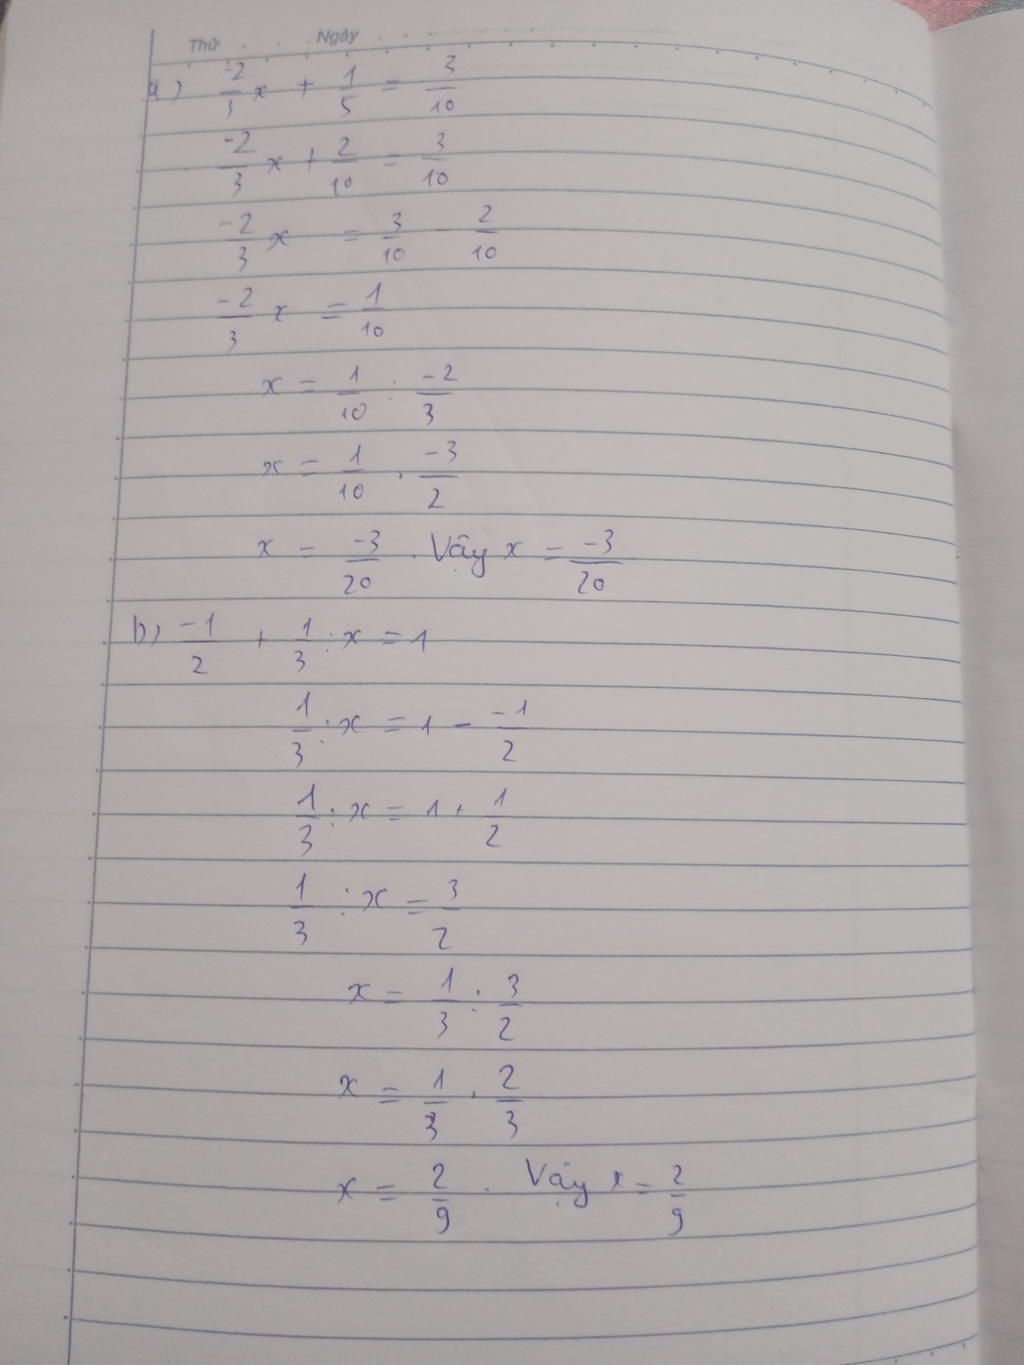 Thứ Ngày
a) -2/3 x + 1/5 = 3/10
-2/3 x + 2/10 = 3/10
-2/3 x = 3/10 - 2/10
-2/3 x = 1/10
x = 1/10 : -2/3
x = 1/10 . -3/2
x = -3/20 . Vậy x = -3/20
b) -1/2 + 1/3 : x = 1
1/3 : x = 1 - -1/2
1/3 : x = 1 + 1/2
1/3 : x = 3/2
x = 1/3 : 3/2
x = 1/3 . 2/3
x = 2/9 . Vậy x = 2/9